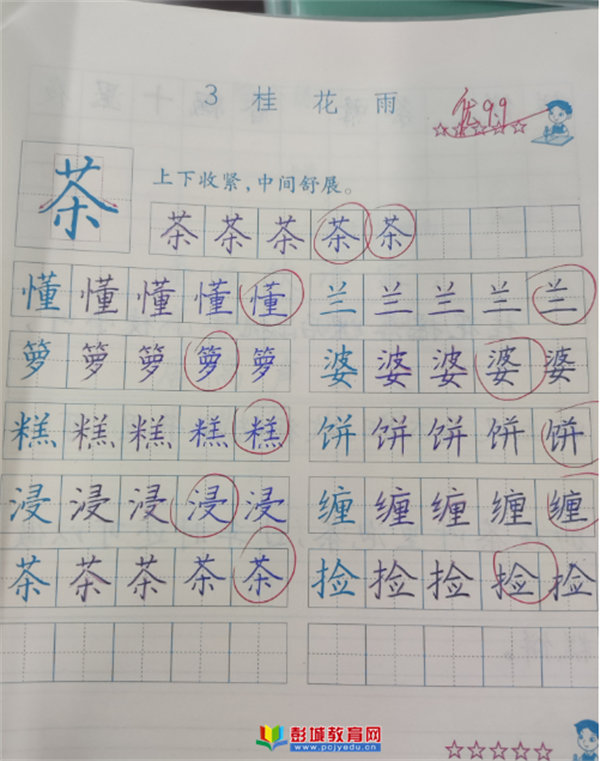 3 桂 花 雨
优99
茶
上下收紧，中间舒展。
茶茶茶茶茶
懂懂懂懂懂 兰兰兰兰兰
箩箩箩箩箩 婆婆婆婆婆
糕糕糕糕糕 饼饼饼饼饼
浸浸浸浸浸 缠缠缠缠缠
茶茶茶茶茶 捡捡捡捡捡
彭城教育网
www.pcjyedu.cn